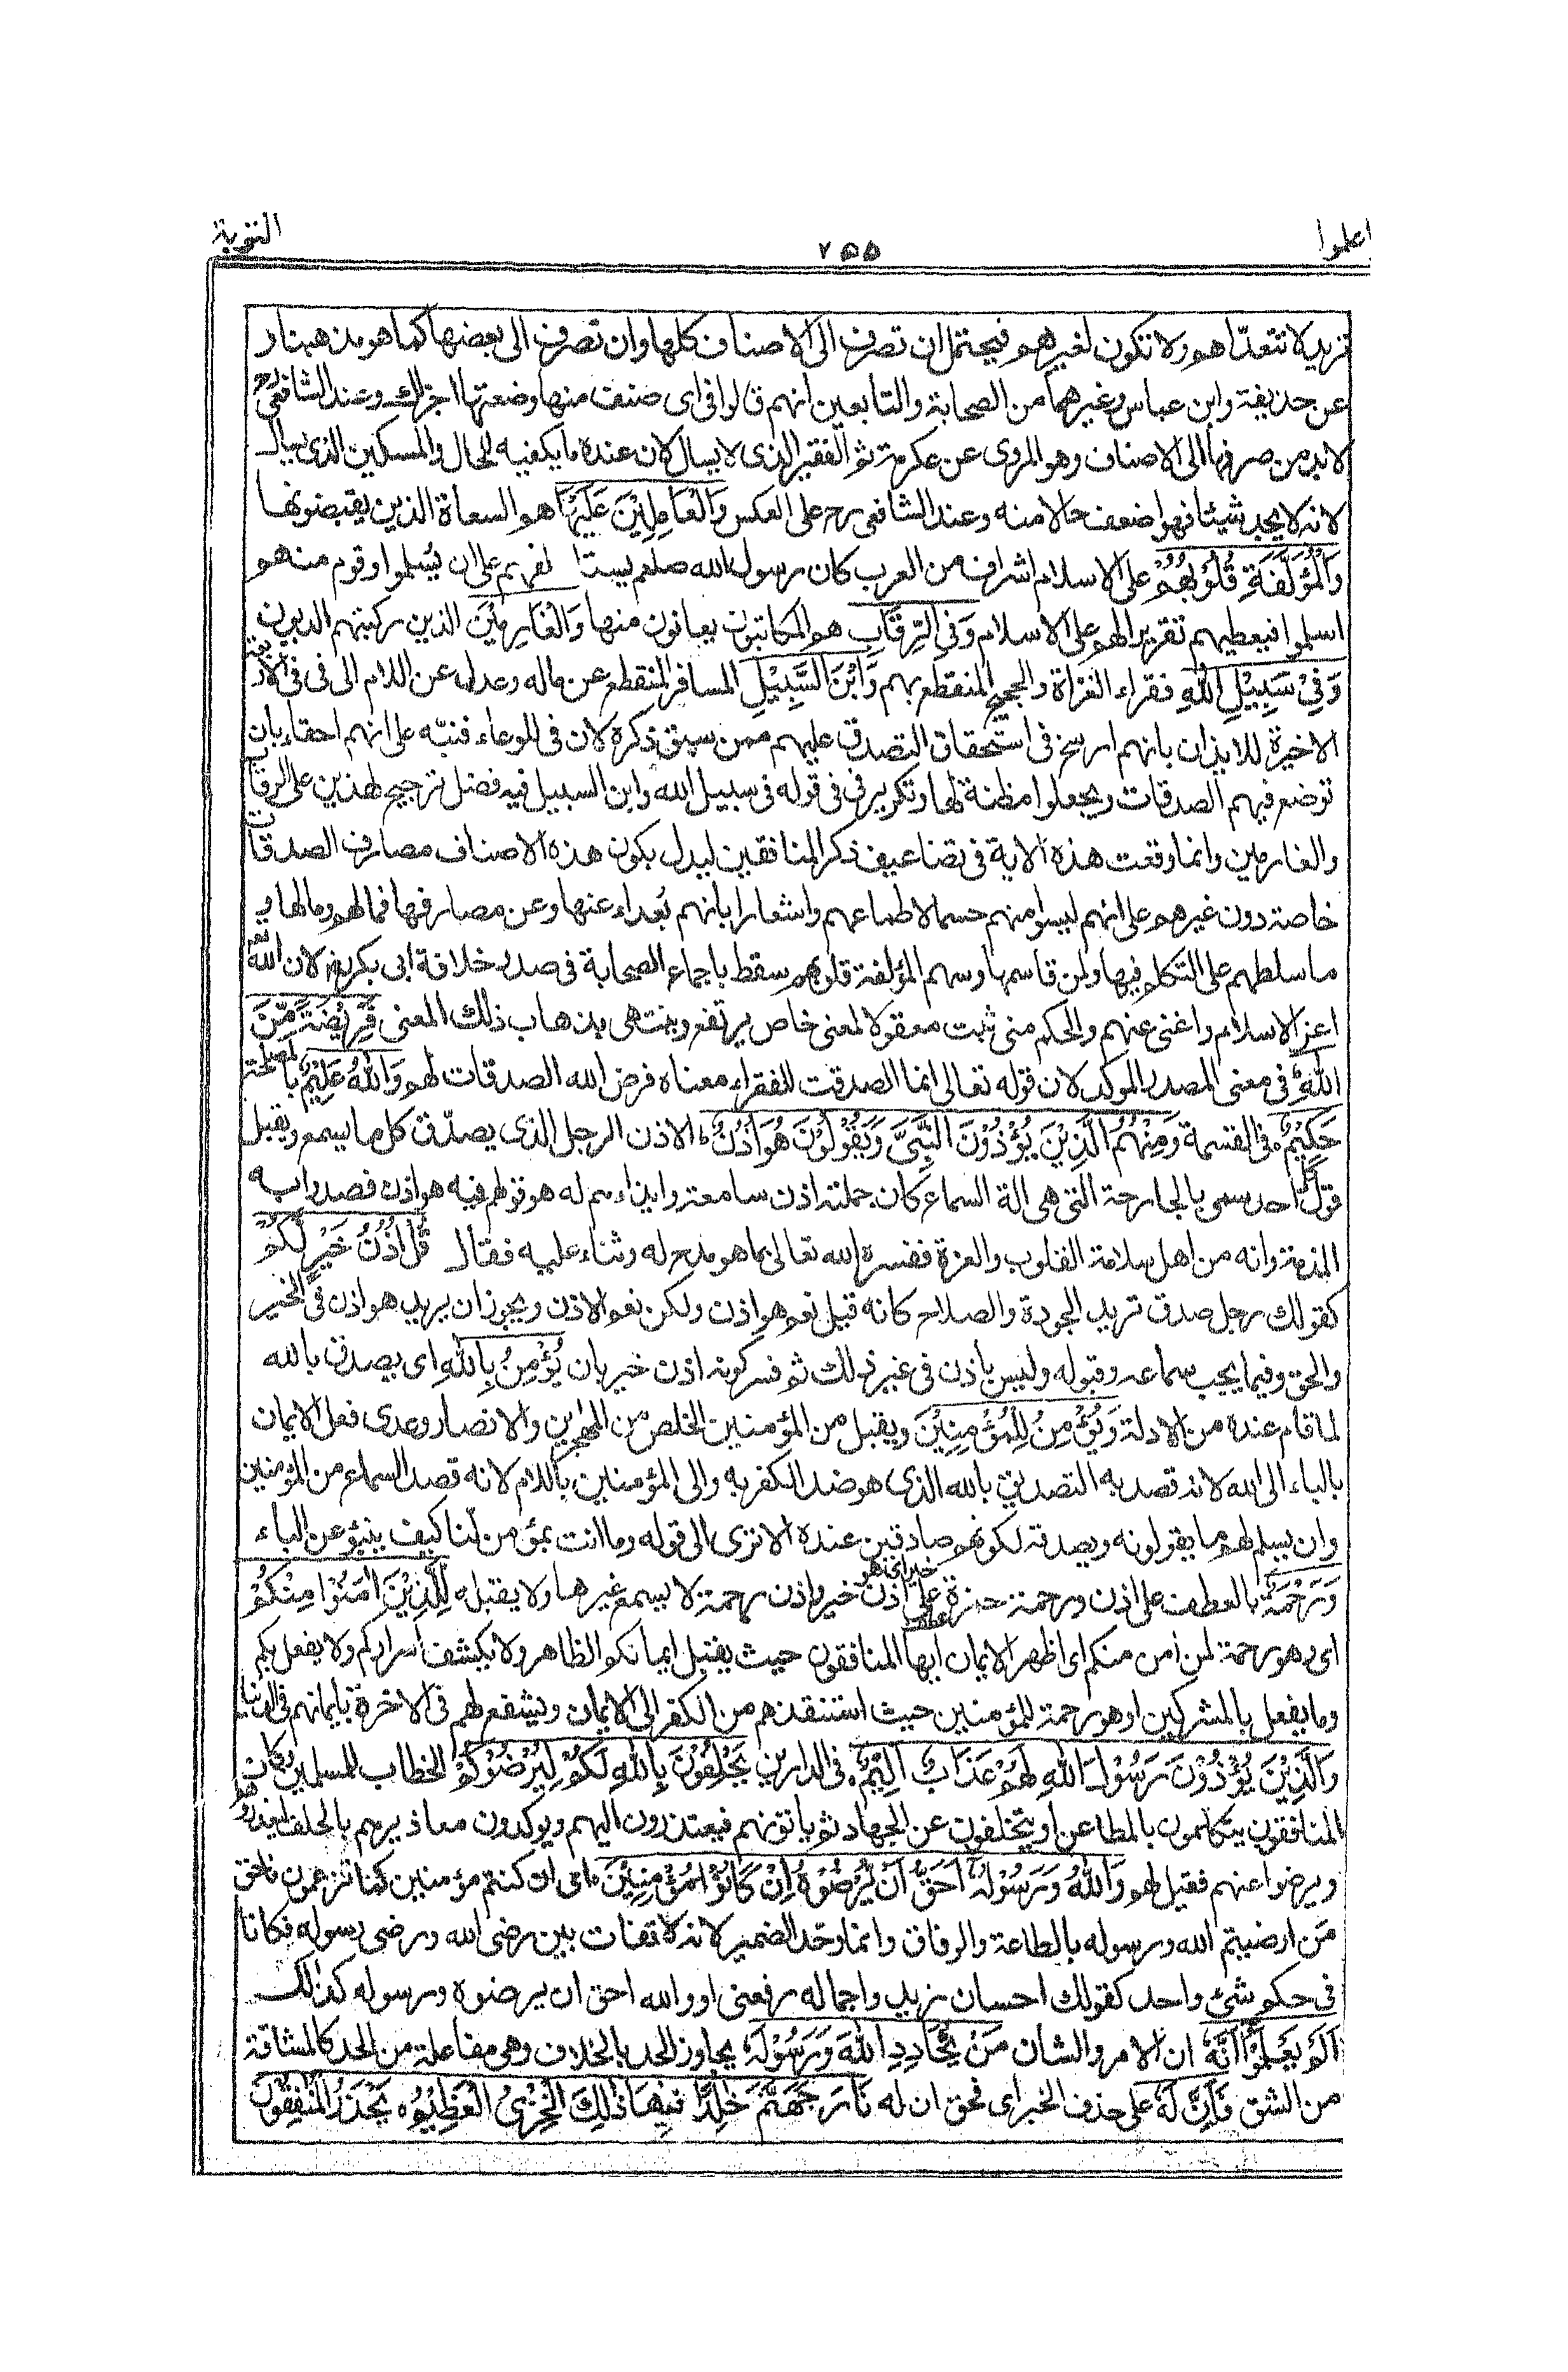 اعلموا ٢٥٥ التوبة
تريد لا تتعداهم ولا تكون لغيرهم فيحتمل ان تصرف الى الاصناف كلها وان تصرف الى بعضها كما هو مذهبنا
عن حذيفة وابن عباس وغيرهما من الصحابة والتابعين انهم قالوا فى اى صنف منها وضعتها اجزاك وعند الشافعى رح
لا بد من صرفها الى الاصناف وهو المروى عن عكرمة ثم الفقير الذى لا يسال لان عنده ما يكفيه للحال والمسكين الذى يسال
لانه لا يجد شيئا فهو اضعف حالا منه وعند الشافعى رح على العكس وَالْعَامِلِيْنَ عَلَيْهَا هم السعاة الذين يقبضونها
وَالْمُؤَلَّفَةِ قُلُوْبُهُمْ على الاسلام اشراف من العرب كان رسول الله صلعم يستا لفهم على ان يُسلموا وقوم منهم
اسلموا فيعطيهم تقريرا لهم على الاسلام وَفِى الرِّقَابِ هم المكاتبون يعانون منها وَالْغَارِمِيْنَ الذين ركبتهم الديون
وَفِىْ سَبِيْلِ اللهِ فقراء الغزاة والحجيج المنقطع بهم وَابْنَ السَّبِيْلِ المسافر المنقطع عن ماله وعدل عن اللام الى فى فى الاربعة
الاخيرة للايذان بانهم ارسخ فى استحقاق التصدق عليهم ممن سبق ذكره لان فى للوعاء فنبّه على انهم احقاء بان
توضع فيهم الصدقات ويجعلوا مظنة لها وتكرير فى فى قوله فى سبيل الله وابن السبيل فيه فضل ترجيح لهذين على الرقاب
والغارمين وانما وقعت هذه الاية فى تضاعيف ذكر المنافقين ليدل بكون هذه الاصناف مصارف الصدقات
خاصة دون غيرهم على انهم ليسوا منهم حسما لاطماعهم واشعارا بانهم بُعداء عنها وعن مصارفها فما لهم وما لها و
ما سلطهم على التكلم فيها ولمن قاسمها وسهم المؤلفة قلوبهم سقط باجماع الصحابة فى صدر خلافة ابى بكر رض لان الله تعالى
اعز الاسلام واغنى عنهم والحكم متى ثبت معقولا لمعنى خاص يرتفع وينتهى بذهاب ذلك المعنى فَرِيْضَةً مِّنَ
اللهِ فى معنى المصدر الموكد لان قوله تعالى انما الصدقت للفقراء معناه فرض الله الصدقات لهم وَاللهُ عَلِيْمٌ بالمصلحة
حَكِيْمٌ فى القسمة وَمِنْهُمُ الَّذِيْنَ يُؤْذُوْنَ النَّبِىَّ وَيَقُوْلُوْنَ هُوَ اُذُنٌ ط الاذن الرجل الذى يصدّق كل ما يسمع ويقبل
قول كل احد سمى بالجارحة التى هى الة السماع كان جملته اذن سامعة وايذاءهم له هو قولهم فيه هو اذن قصدوا به
المذمة وانه من اهل سلامة القلوب والعزة ففسره الله تعالى بما هو مدح له وثناء عليه فقال قُلْ اُذُنُ خَيْرٍ لَّكُمْ
كقولك رجل صدق تريد الجودة والصلاح كانه قيل نعم هو اذن ولكن نعم الاذن ويجوز ان يريد هو اذن فى الخير
والحق وفيما يجب سماعه وقبوله وليس باذن فى غير ذلك ثم فسر كونه اذن خير بان يُؤْمِنُ بِاللهِ اى يصدق بالله
لما قام عنده من الادلة وَيُؤْمِنُ لِلْمُؤْمِنِيْنَ ويقبل من المؤمنين الخلص من المهجرين والانصار وعدى فعل الايمان
بالباء الى الله لانه قصد به التصديق بالله الذى هو ضد الكفر به والى المؤمنين باللام لانه قصد السماع من المؤمنين
وان يسلم لهم ما يقولونه ويصدقه لكونهم صادقين عنده الا ترى الى قوله وما انت بمؤمن لنا كيف ينبؤ عن الباء
وَرَحْمَةٌ بالعطف على اذن ورحمة حمزة عطف على خير اى هو اذن خير واذن رحمة لا يسمع غيرهما ولا يقبله لِلَّذِيْنَ اٰمَنُوْا مِنْكُمْ
اى وهو رحمة لمن امن منكم اى اظهر الايمان ايها المنافقون حيث يقبل ايمانكم الظاهر ولا يكشف اسراركم ولا يفعل بكم
وما يفعل بالمشركين او هو رحمة للمؤمنين حيث استنقذهم من الكفر الى الايمان ويشفع لهم فى الاخرة بايمانهم فى الدنيا
وَالَّذِيْنَ يُؤْذُوْنَ رَسُوْلَ اللهِ لَهُمْ عَذَابٌ اَلِيْمٌ فى الدارين يَحْلِفُوْنَ بِاللهِ لَكُمْ لِيُرْضُوْكُمْ الخطاب للمسلمين وكان
المنافقون يتكلمون بالمطاعن او يتخلفون عن الجهاد ثم ياتونهم فيعتذرون اليهم ويوكدون معاذيرهم بالحلف ليعذروهم
ويرضوا عنهم فقيل لهم وَاللهُ وَرَسُوْلُهٗ اَحَقُّ اَنْ يُّرْضُوْهُ اِنْ كَانُوْا مُؤْمِنِيْنَ اى ان كنتم مؤمنين كما تزعمون فاحق
من ارضيتم الله ورسوله بالطاعة والوفاق وانما وحّد الضمير لانه لا تفاوت بين رضى الله ورضى رسوله فكانا
فى حكم شئ واحد كقولك احسان زيد واجماله رفعنى او والله احق ان يرضوه ورسوله كذلك
اَلَمْ يَعْلَمُوْا اَنَّهٗ ان الامر والشان مَنْ يُّحَادِدِ اللهَ وَرَسُوْلَهٗ يجاوز الحد بالخلاف وهى مفاعلة من الحد كالمشاقة
من الشق فَاَنَّ لَهٗ على حذف الخبر اى فحق ان له نَارَ جَهَنَّمَ خٰلِدًا فِيْهَا ذٰلِكَ الْخِزْىُ الْعَظِيْمُ ه يَحْذَرُ الْمُنٰفِقُوْنَ